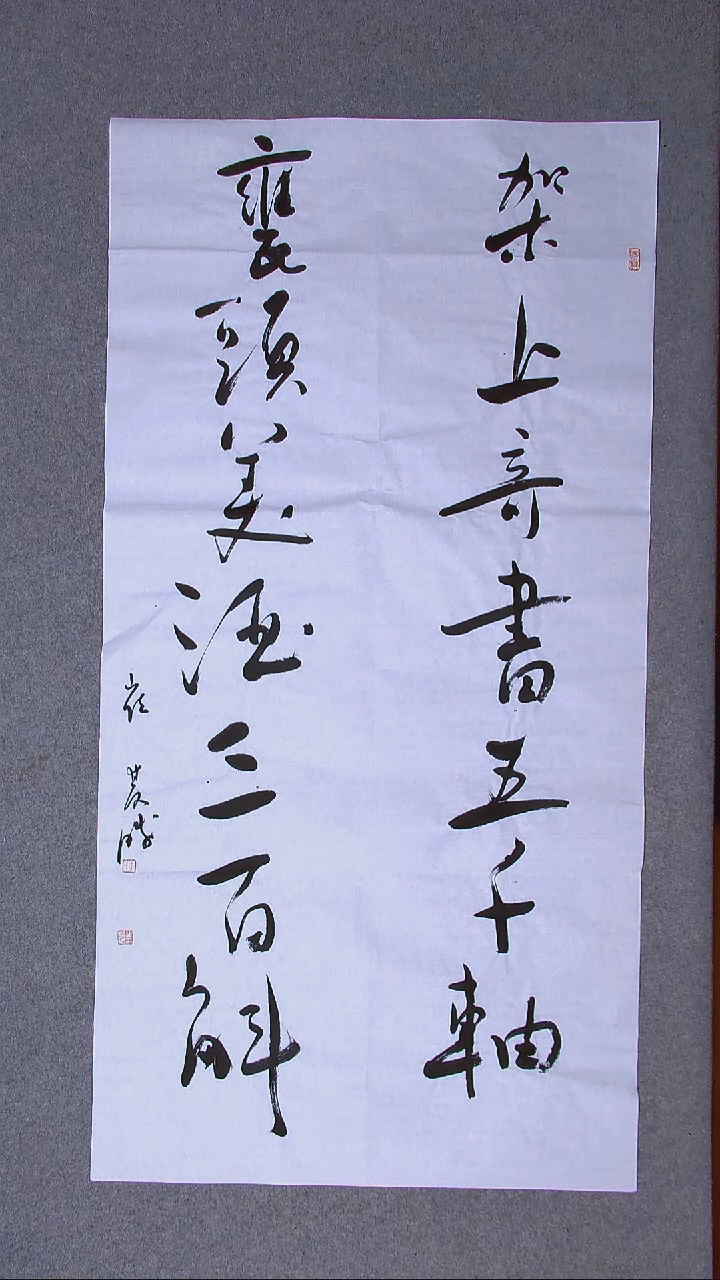 架上奇書五千軸
甕頭美酒三百斛
崔